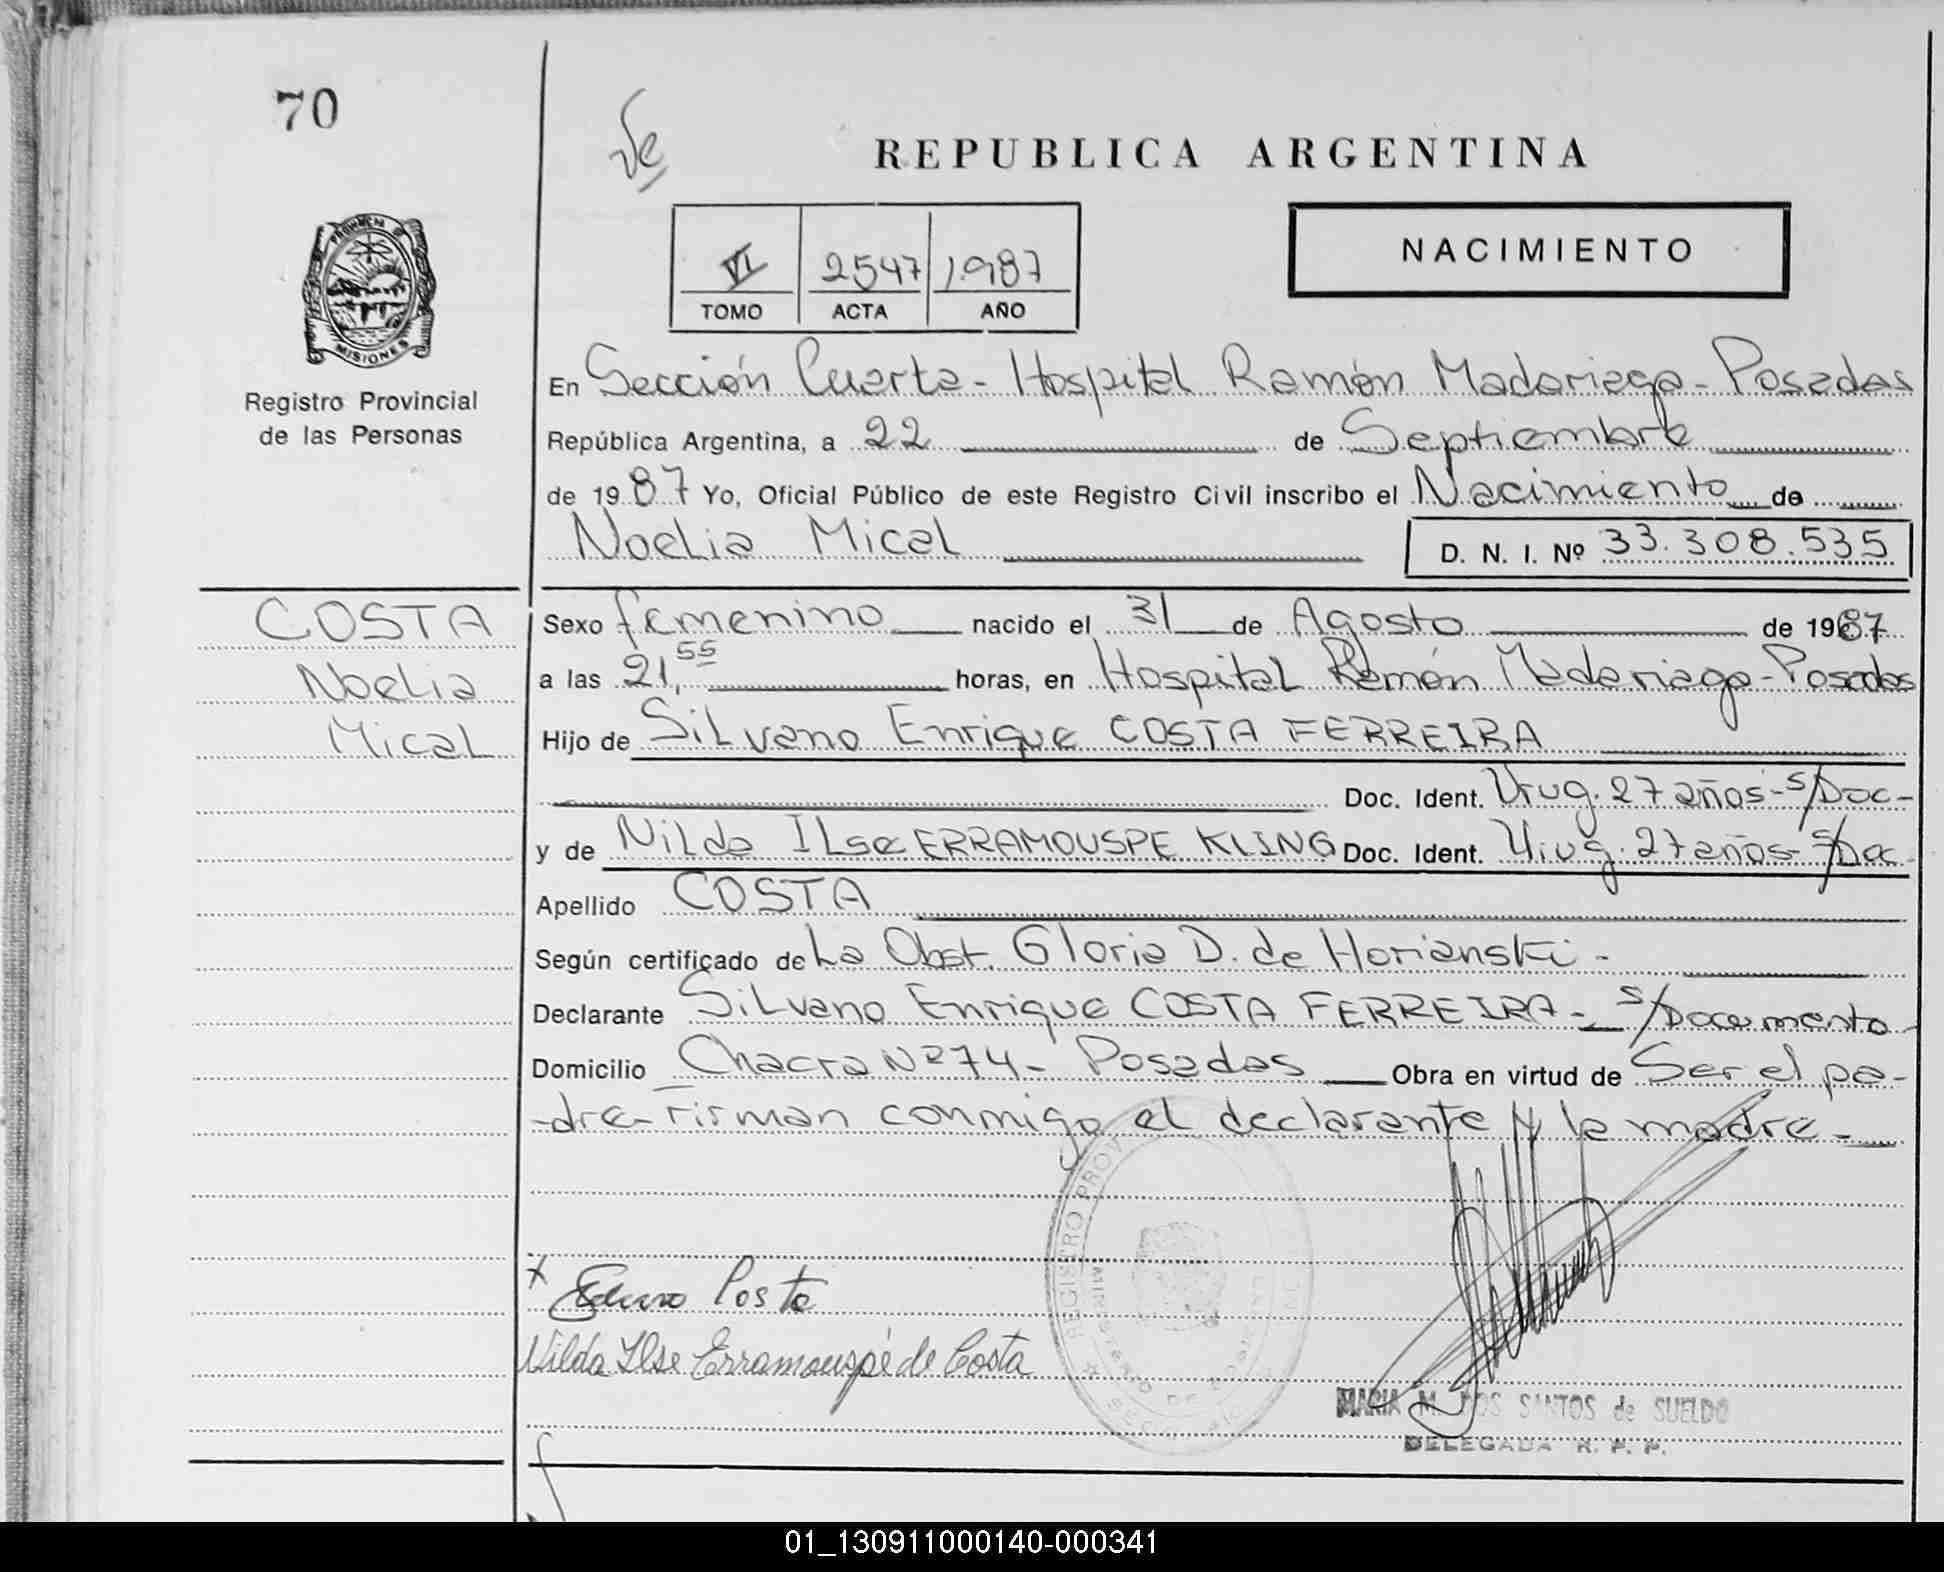 70
REPUBLICA ARGENTINA
NACIMIENTO
VI 2547 1987
TOMO ACTA AÑO
PROVINCIA DE
MISIONES
Registro Provincial
de las Personas
En Sección Cuarta - Hospital Ramón Madariaga - Posadas
República Argentina, a 22 de Septiembre
de 1987 Yo, Oficial Público de este Registro Civil inscribo el Nacimiento de
Noelia Mical D. N. I. Nº 33.308.535
COSTA
Noelia
Mical
Sexo femenino nacido el 31 de Agosto de 1987
a las 21,55 horas, en Hospital Ramón Madariaga - Posadas
Hijo de Silvano Enrique COSTA FERREIRA
Doc. Ident. Urug. 27 años - s/Doc -
y de Nilda Ilse ERRAMOUSPE KLING Doc. Ident. Urug. 27 años - s/Doc -
Apellido COSTA
Según certificado de La Obst. Gloria D. de Horianski -
Declarante Silvano Enrique COSTA FERREIRA - s/Documento -
Domicilio Chacra Nº 74 - Posadas Obra en virtud de Ser el pa-
-dre - Firman conmigo el declarante y la madre -
REGISTRO PROV
Costa
Nilda Ilse Erramouspé de Costa
MARIA M. DOS SANTOS de SUELDO
DELEGADA R. P. P.
01_130911000140-000341